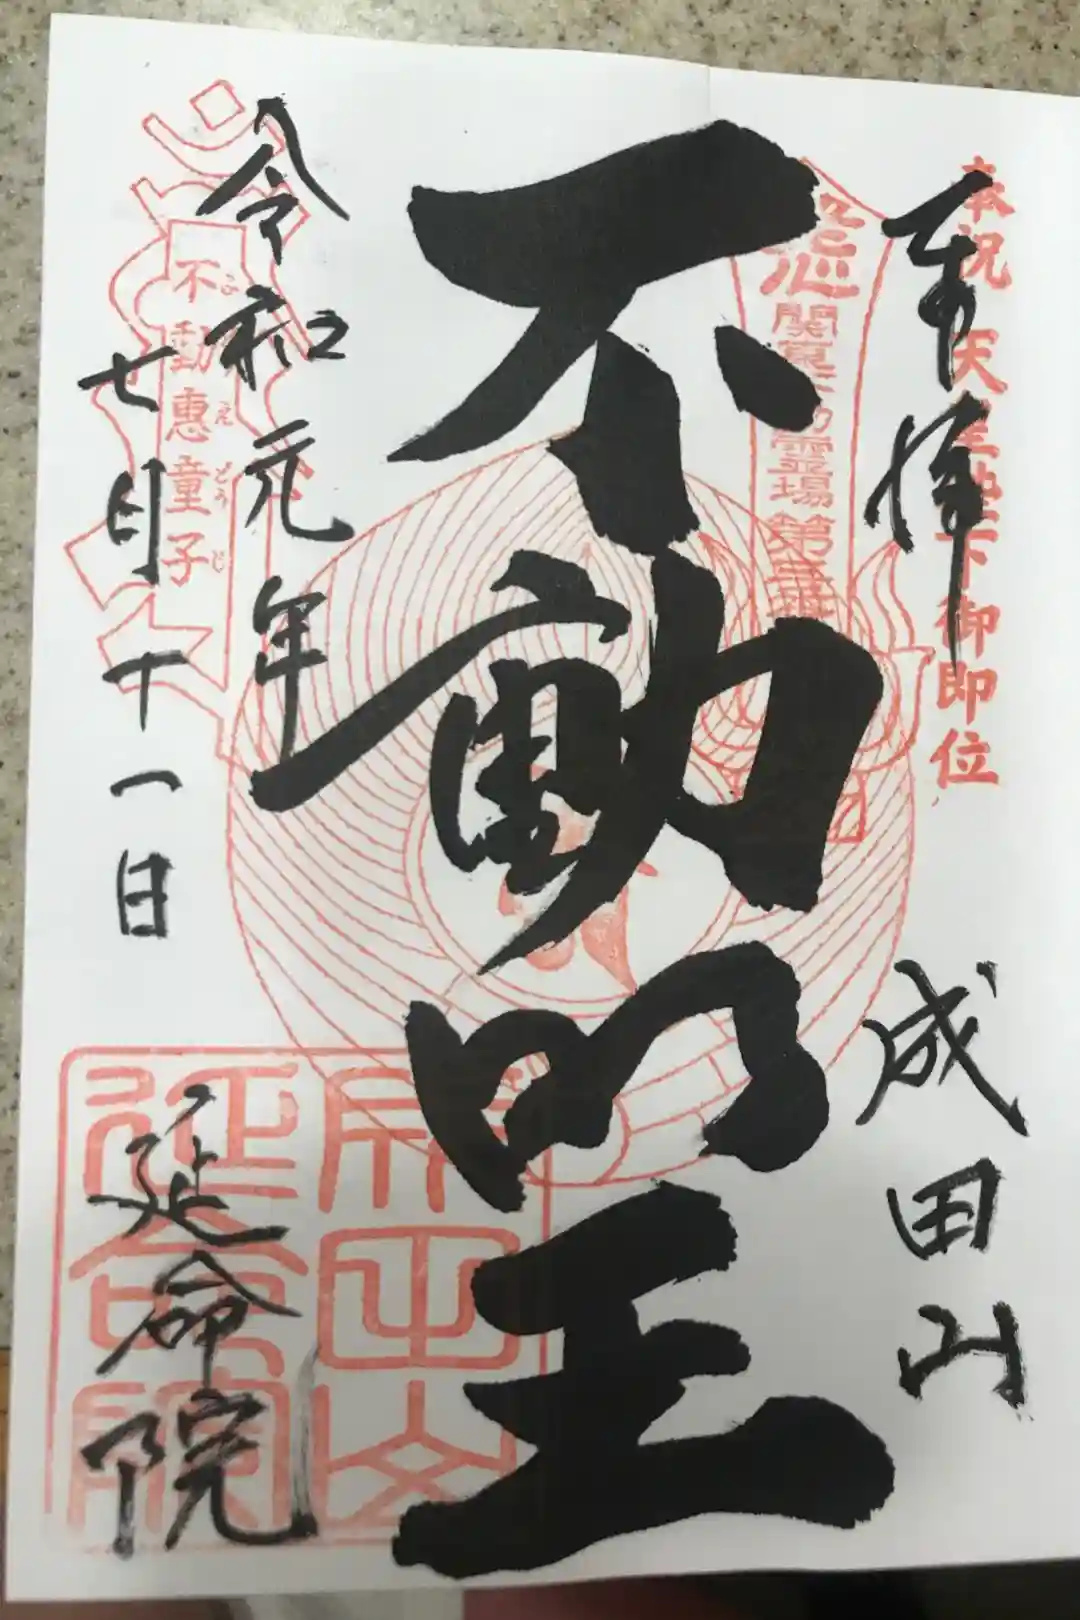 奉祝 天皇陛下御即位
奉拝
成田山
関東三十六不動霊場第
不動明王
令和元年
七月十一日
不動恵童子
ふ
どう
え
どう
じ
延命院
成田山
延命院